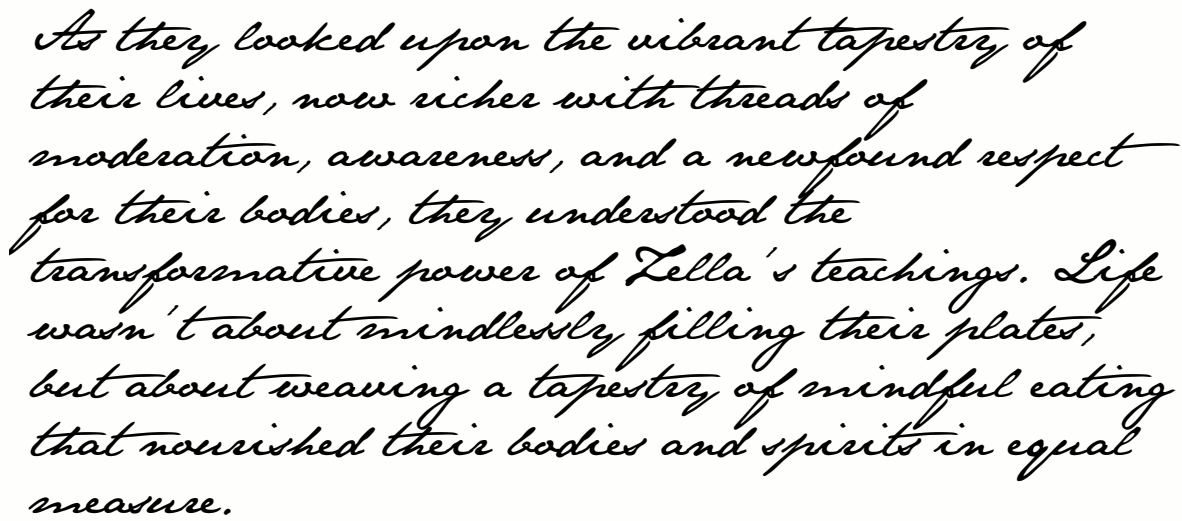 As they looked upon the vibrant tapestry of
their lives, now richer with threads of
moderation, awareness, and a newfound respect
for their bodies, they understood the
transformative power of Zella's teachings. Life
wasn't about mindlessly filling their plates,
but about weaving a tapestry of mindful eating
that nourished their bodies and spirits in equal
measure.